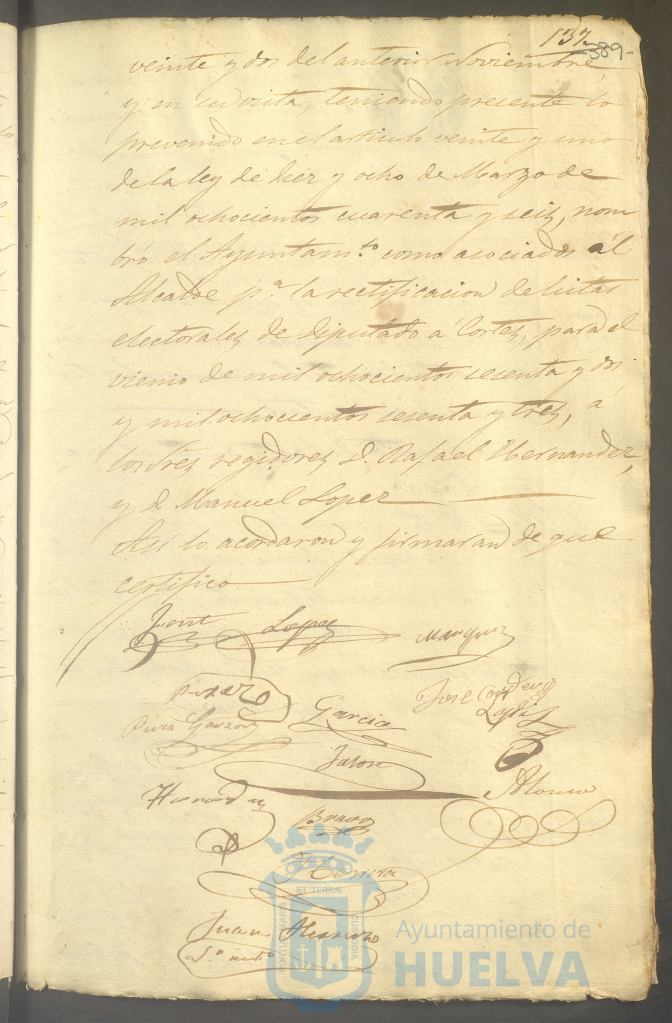 137
389-
veinte y dos del anterior Noviembre,
y en su vista, teniendo presente lo
prevenido en el articulo veinte y uno
de la ley de diez y ocho de Marzo de
mil ochocientos cuarenta y seis, nom
bró el Ayuntam.to como asociados al
Alcalde p.a la rectificacion de listas
electorales de Diputado a Cortes, para el
vienio de mil ochocientos sesenta y dos
y mil ochocientos sesenta y tres, á
los Sres regidores D. Rafael Hernandez,
y D. Manuel Lopez
Asi lo acordaron y firmaran de que
certifico
Lopez Marquez
Garcia Jose
Hernandez
Bravo
Alonso
Herrera
Juan
S.o
PORTUS MARIS ET TERRÆ CUSTODIA
Ayuntamiento de
HUELVA